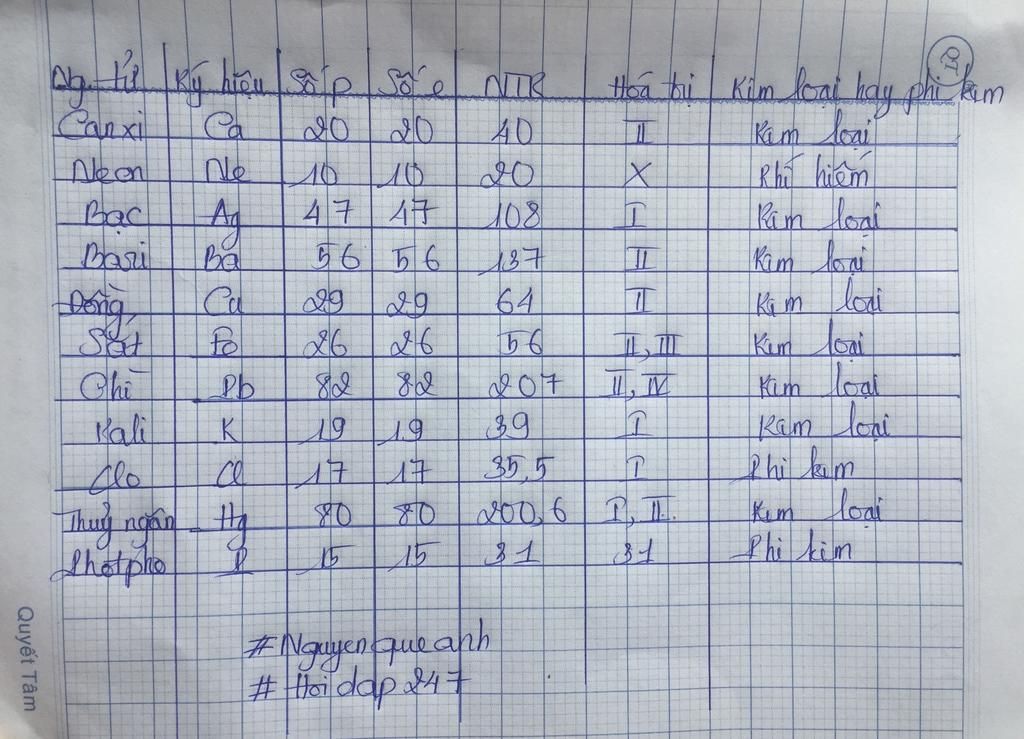 Ng. tử Ký hiệu Số p Số e NTK Hoá trị Kim loại hay phi kim
Canxi Ca 20 20 40 II Kim loại
Neon Ne 10 10 20 X Khí hiếm
Bạc Ag 47 47 108 I Kim loại
Bari Ba 56 56 137 II Kim loại
Đồng Cu 29 29 64 II Kim loại
Sắt Fe 26 26 56 II, III Kim loại
Chì Pb 82 82 207 II, IV Kim loại
Kali K 19 19 39 I Kim loại
Clo Cl 17 17 35,5 I Phi kim
Thuỷ ngân Hg 80 80 200,6 I, II. Kim loại
Photpho P 15 15 31 31 Phi kim
#Nguyenqueanh
#Hoidap247
Quyết Tâm